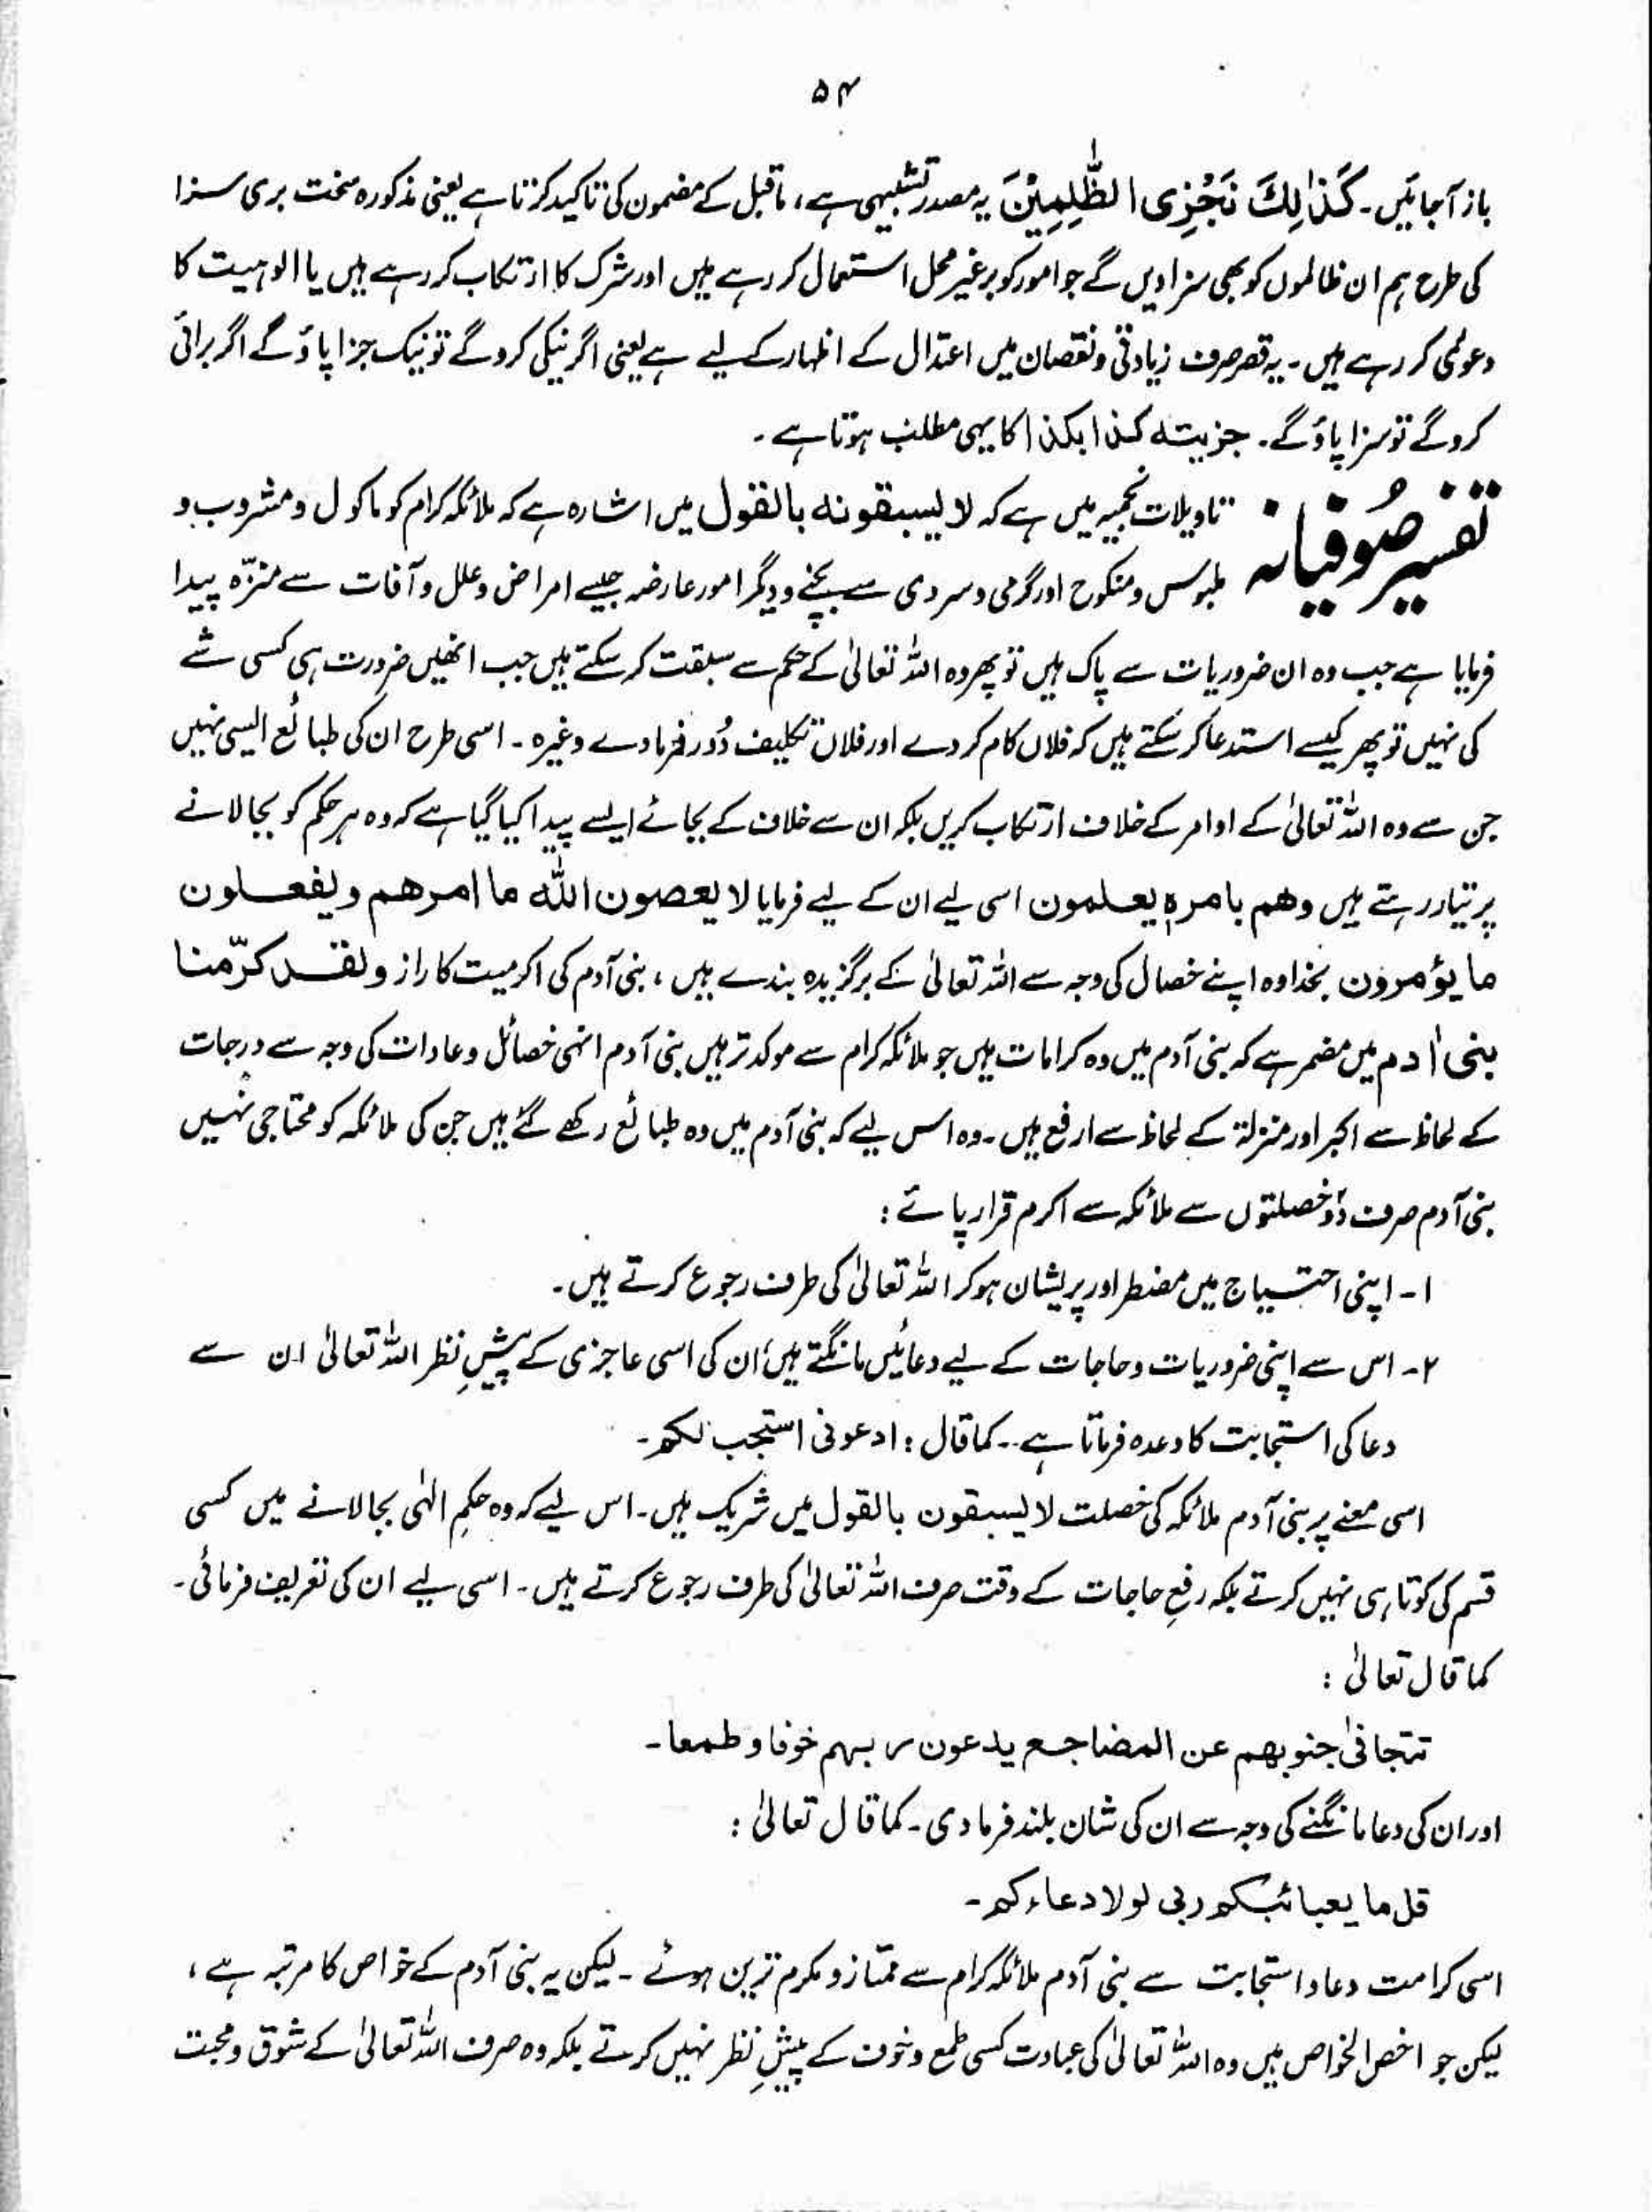 ۵۴
باز آجائیں۔ كَذٰلِكَ نَجْزِی الظّٰلِمِیْنَ یہ مصدر تشبیہی ہے، ماقبل کے مضمون کی تاکید کرتا ہے یعنی مذکورہ سخت بری سزا
کی طرح ہم ان ظالموں کو بھی سزا دیں گے جو امور کو بر غیر محل استعمال کر رہے ہیں اور شرک کا ارتکاب کر رہے ہیں یا الوہیت کا
دعوٰی کر رہے ہیں۔ یہ قصر صرف زیادتی و نقصان میں اعتدال کے اظہار کے لیے ہے یعنی اگر نیکی کرو گے تو نیک جزا پاؤ گے اگر برائی
کرو گے تو سزا پاؤ گے۔ جزیتہ کذا بکذا کا یہی مطلب ہوتا ہے۔
تفسیر صُوفیانہ تاویلات نجمیہ میں ہے کہ لا یسبقونہ بالقول میں اشارہ ہے کہ ملائکہ کرام کو ماکول و مشروب و
ملبوس و منکوح اور گرمی و سردی سے بچنے و دیگر امور عارضہ جیسے امراض و علل و آفات سے منزّہ پیدا
فرمایا ہے جب وہ ان ضروریات سے پاک ہیں تو پھر وہ اللہ تعالیٰ کے حکم سے سبقت کر سکتے ہیں جب انھیں ضرورت ہی کسی شے
کی نہیں تو پھر کیسے استدعا کر سکتے ہیں کہ فلاں کام کر دے اور فلاں تکلیف دُور فرما دے وغیرہ۔ اسی طرح ان کی طبائع ایسی نہیں
جن سے وہ اللہ تعالیٰ کے اوامر کے خلاف ارتکاب کریں بلکہ ان سے خلاف کے بجائے ایسے پیدا کیا گیا ہے کہ وہ ہر حکم کو بجا لانے
پر تیار رہتے ہیں وھم بامرہٖ یعلمون اسی لیے ان کے لیے فرمایا لا یعصون اللہ ما امرھم ویفعلون
ما یؤمرون بخدا وہ اپنے خصال کی وجہ سے اللہ تعالیٰ کے برگزیدہ بندے ہیں، بنی آدم کی اکرمیت کا راز ولقد کرّمنا
بنی اٰدم میں مضمر ہے کہ بنی آدم میں وہ کرامات ہیں جو ملائکہ کرام سے موکد تر ہیں بنی آدم انہی خصائل و عادات کی وجہ سے درجات
کے لحاظ سے اکبر اور منزلۃ کے لحاظ سے ارفع ہیں۔ وہ اس لیے کہ بنی آدم میں وہ طبائع رکھے گئے ہیں جن کی ملائکہ کو محتاجی نہیں
بنی آدم صرف دو خصلتوں سے ملائکہ سے اکرم قرار پائے :
۱۔ اپنی احتیاج میں مضطر اور پریشان ہو کر اللہ تعالیٰ کی طرف رجوع کرتے ہیں۔
۲۔ اس سے اپنی ضروریات و حاجات کے لیے دعائیں مانگتے ہیں، ان کی اسی عاجزی کے پیشِ نظر اللہ تعالیٰ ان سے
دعا کی استجابت کا وعدہ فرماتا ہے۔ کما قال : ادعونی استجب لکم۔
اسی معنے پر بنی آدم ملائکہ کی خصلت لا یسبقون بالقول میں شریک ہیں۔ اس لیے کہ وہ حکمِ الٰہی بجا لانے میں کسی
قسم کی کوتاہی نہیں کرتے بلکہ رفعِ حاجات کے وقت صرف اللہ تعالیٰ کی طرف رجوع کرتے ہیں۔ اسی لیے ان کی تعریف فرمائی۔
کما قال تعالیٰ :
تتجافیٰ جنوبھم عن المضاجع یدعون ربہم خوفا و طمعا۔
اور ان کی دعا مانگنے کی وجہ سے ان کی شان بلند فرما دی۔ کما قال تعالیٰ :
قل ما یعبائبکم ربی لولا دعاءکم۔
اسی کرامت دعا و استجابت سے بنی آدم ملائکہ کرام سے ممتاز و مکرم ترین ہوئے۔ لیکن یہ بنی آدم کے خواص کا مرتبہ ہے،
لیکن جو اخص الخواص ہیں وہ اللہ تعالیٰ کی عبادت کسی طمع و خوف کے پیشِ نظر نہیں کرتے بلکہ وہ صرف اللہ تعالیٰ کے شوق و محبت